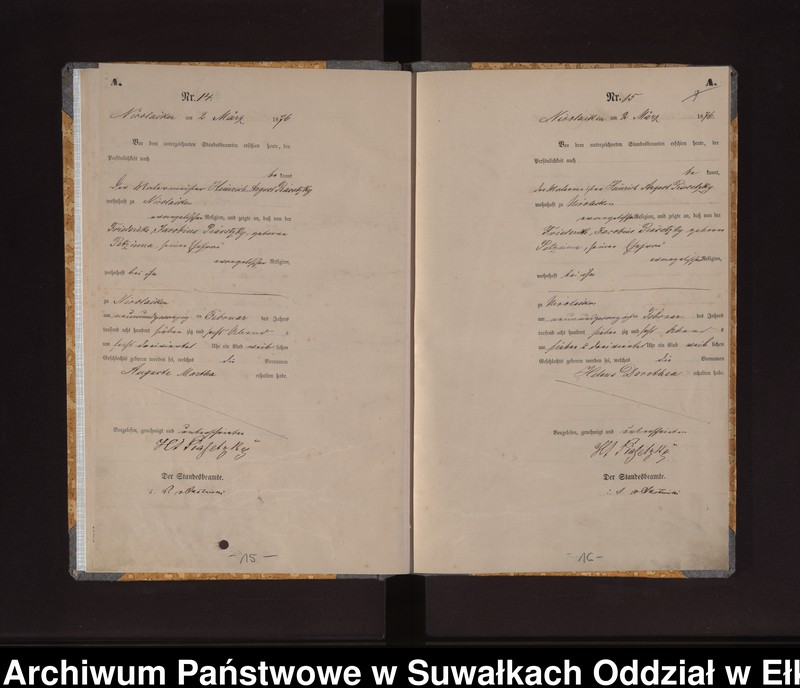 A.
Nr. 14.
Nicolaiken am 2 März 1876
Vor dem unterzeichneten Standesbeamten erschien heute, der
Persönlichkeit nach
be kannt,
der Malermeister Heinrich August Piasetzky
wohnhaft zu Nicolaiken
evangelischer Religion, und zeigte an, daß von der
Friederike Jacobine Piasetzky geborene
seiner Ehefrau
evangelischer Religion,
wohnhaft bei ihm
zu Nicolaiken
am neunundzwanzigsten Februar des Jahres
tausend acht hundert siebenzig und sechs Abends
um sechs Uhr ein Kind weiblichen
Geschlechts geboren worden sei, welches die Vornamen
Auguste Martha erhalten habe.
Vorgelesen, genehmigt und unterschrieben
HA Piasetzky
Der Standesbeamte.
- 15 -
A.
Nr. 15
Nicolaiken am 2 März 1876.
Vor dem unterzeichneten Standesbeamten erschien heute, der
Persönlichkeit nach
be kannt,
der Malermeister Heinrich August Piasetzky
wohnhaft zu Nicolaiken
evangelischer Religion, und zeigte an, daß von der
Friederike Jacobine Piasetzky geborene
seiner Ehefrau
evangelischer Religion,
wohnhaft bei ihm
zu Nicolaiken
am neunundzwanzigsten Februar des Jahres
tausend acht hundert siebenzig und sechs Abends
um sieben Uhr ein Kind weiblichen
Geschlechts geboren worden sei, welches die Vornamen
Helene Dorothea erhalten habe.
Vorgelesen, genehmigt und unterschrieben
HA Piasetzky
Der Standesbeamte.
- 16 -
Archiwum Państwowe w Suwałkach Oddział w Ełk